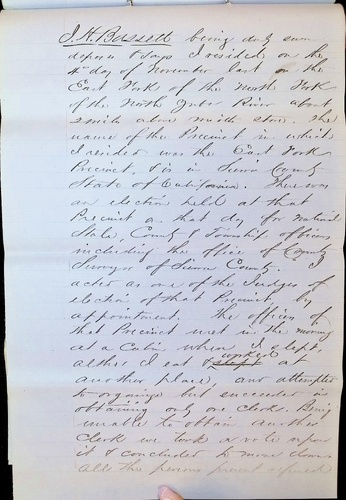 J. H. Bassett being duly sworn
deposes & says I resided on the
4th day of November last on the
East Fork of the North Fork
of the North Yuba River about
mile above store. The
name of the Precinct in which
I resided was the East Fork
Precinct, & is in Sierra County
State of California. There was
an election held at that
Precinct on that day for National
State, County & Township officers
including the office of County
Surveyor of Sierra County. I
acted as one of the Judges of
election of that Precinct, by
appointment. The officers of
that Precinct met in the morning
at a Cabin where I slept,
altho I eat & worked at
another place, and attempted
to organize but succeeded in
obtaining only one Clerk. Being
unable to obtain another
Clerk we took a vote upon
it & concluded to move down
all the persons present